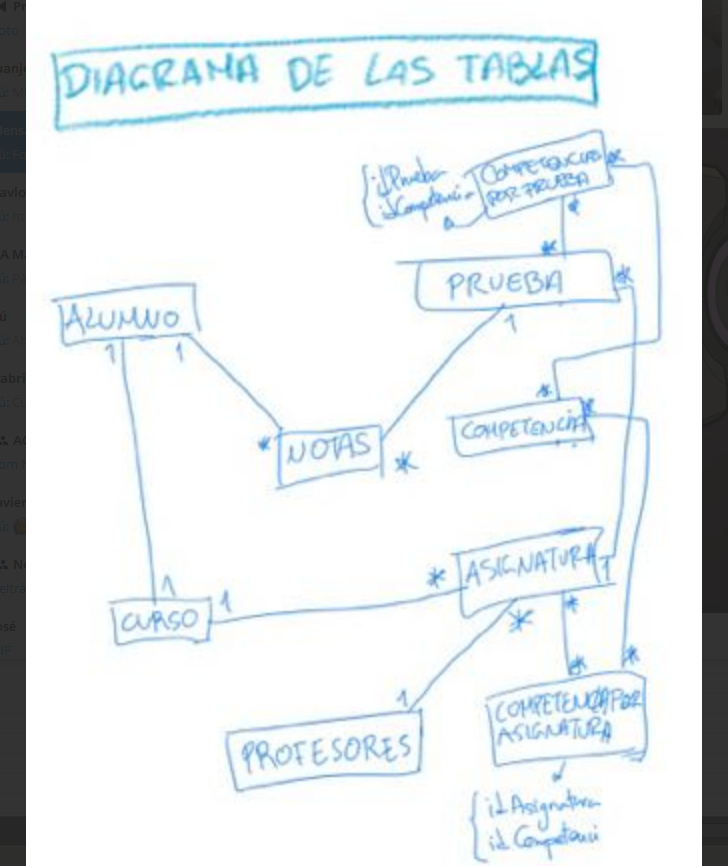 DIAGRAMA DE LAS TABLAS
COMPETENCIAS
POR PRUEBA
idPrueba
idCompetencia
*
*
*
PRUEBA
*
1
ALUMNO
1
1
*
NOTAS
*
*
COMPETENCIA
*
*
ASIGNATURA
1
1
CURSO
1
*
*
*
*
1
PROFESORES
COMPETENCIA POR
ASIGNATURA
idAsignatura
idCompetenci